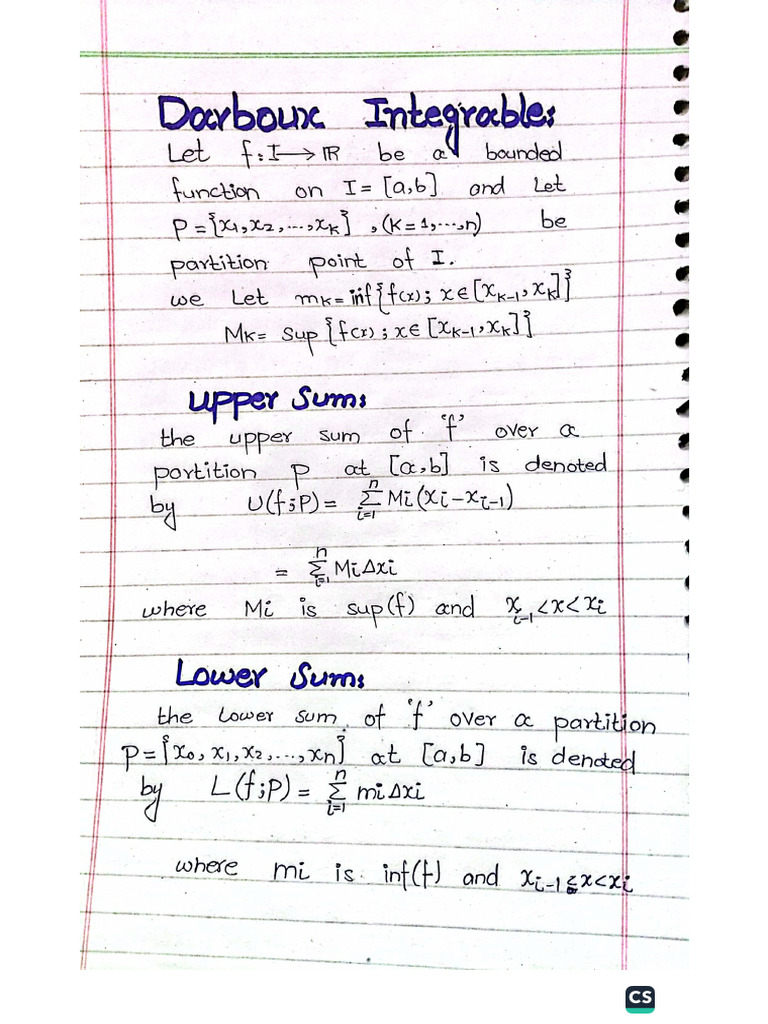 Darboux Integrable:
Let f: I⟶ℝ be a bounded
function on I = [a,b] and Let
P = {x₁, x₂, ..., xₖ}, (K = 1, ..., n) be
partition point of I.
we Let mₖ = inf{f(x); x ∈ [xₖ₋₁, xₖ]}
Mₖ = Sup {f(x); x ∈ [xₖ₋₁, xₖ]}
Upper Sum:
the upper sum of 'f' over a
partition P at [a,b] is denoted
by U(f;P) = ∑ⁿᵢ₌₁ Mi(xi − xi₋₁)
= ∑ⁿᵢ₌₁ Mi Δxi
where Mi is sup(f) and xᵢ₋₁ < x < xi
Lower Sum:
the Lower sum of 'f' over a partition
P = {x₀, x₁, x₂, ..., xn} at [a,b] is denoted
by L(f;P) = ∑ⁿᵢ₌₁ mi Δxi
where mi is inf(f) and xᵢ₋₁ ≤ x < xi
CS